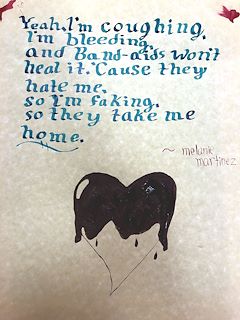 Yeah, I'm coughing,
I'm bleeding,
and Band-aids won't
heal it. 'Cause they
hate me,
so I'm faking,
so they take me
home.
~ melanie
martinez